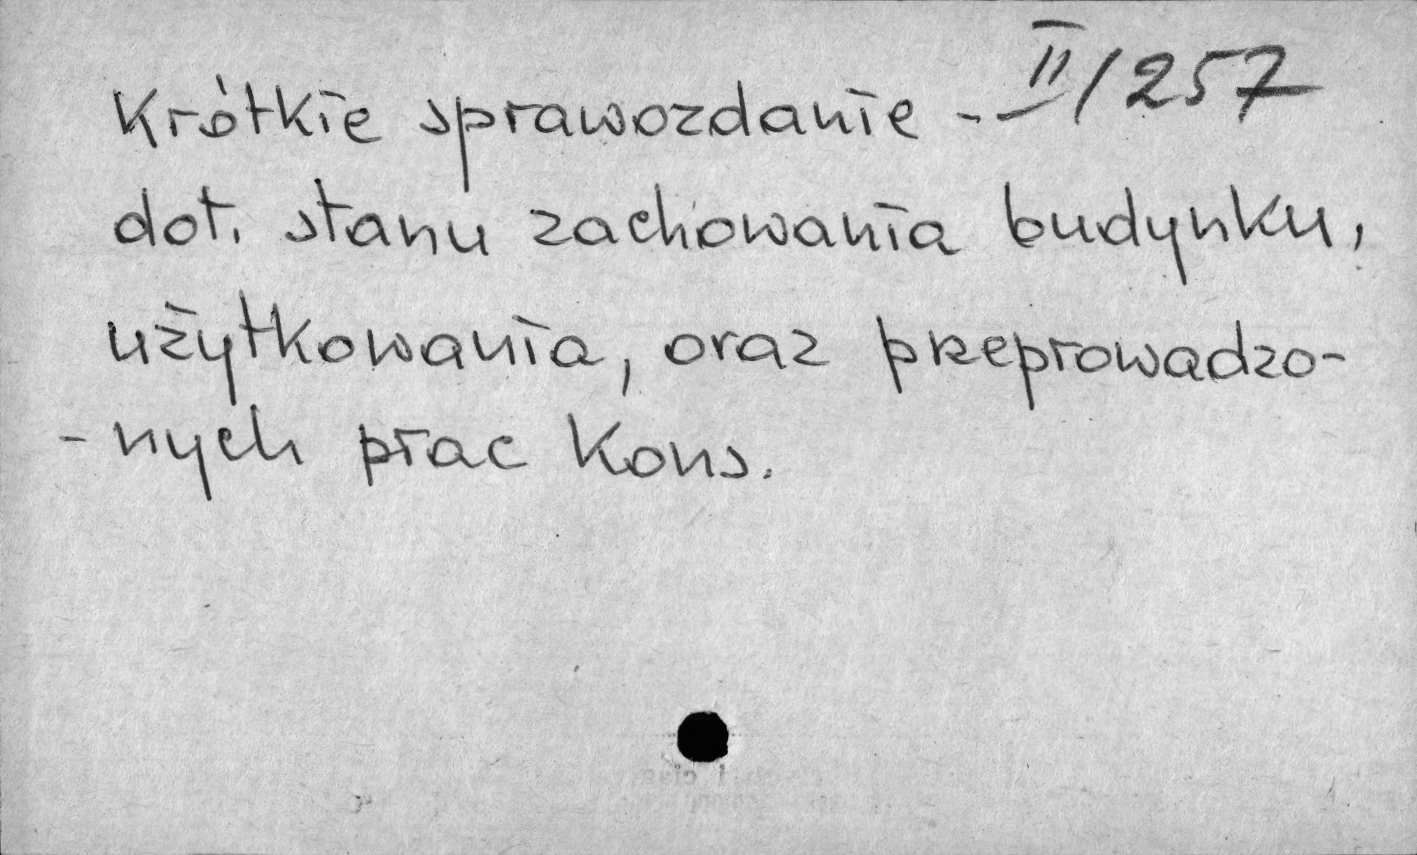 Krótkie sprawozdanie - II/257
dot. stanu zachowania budynku,
użytkowania, oraz przeprowadzo-
- nych prac Kons.